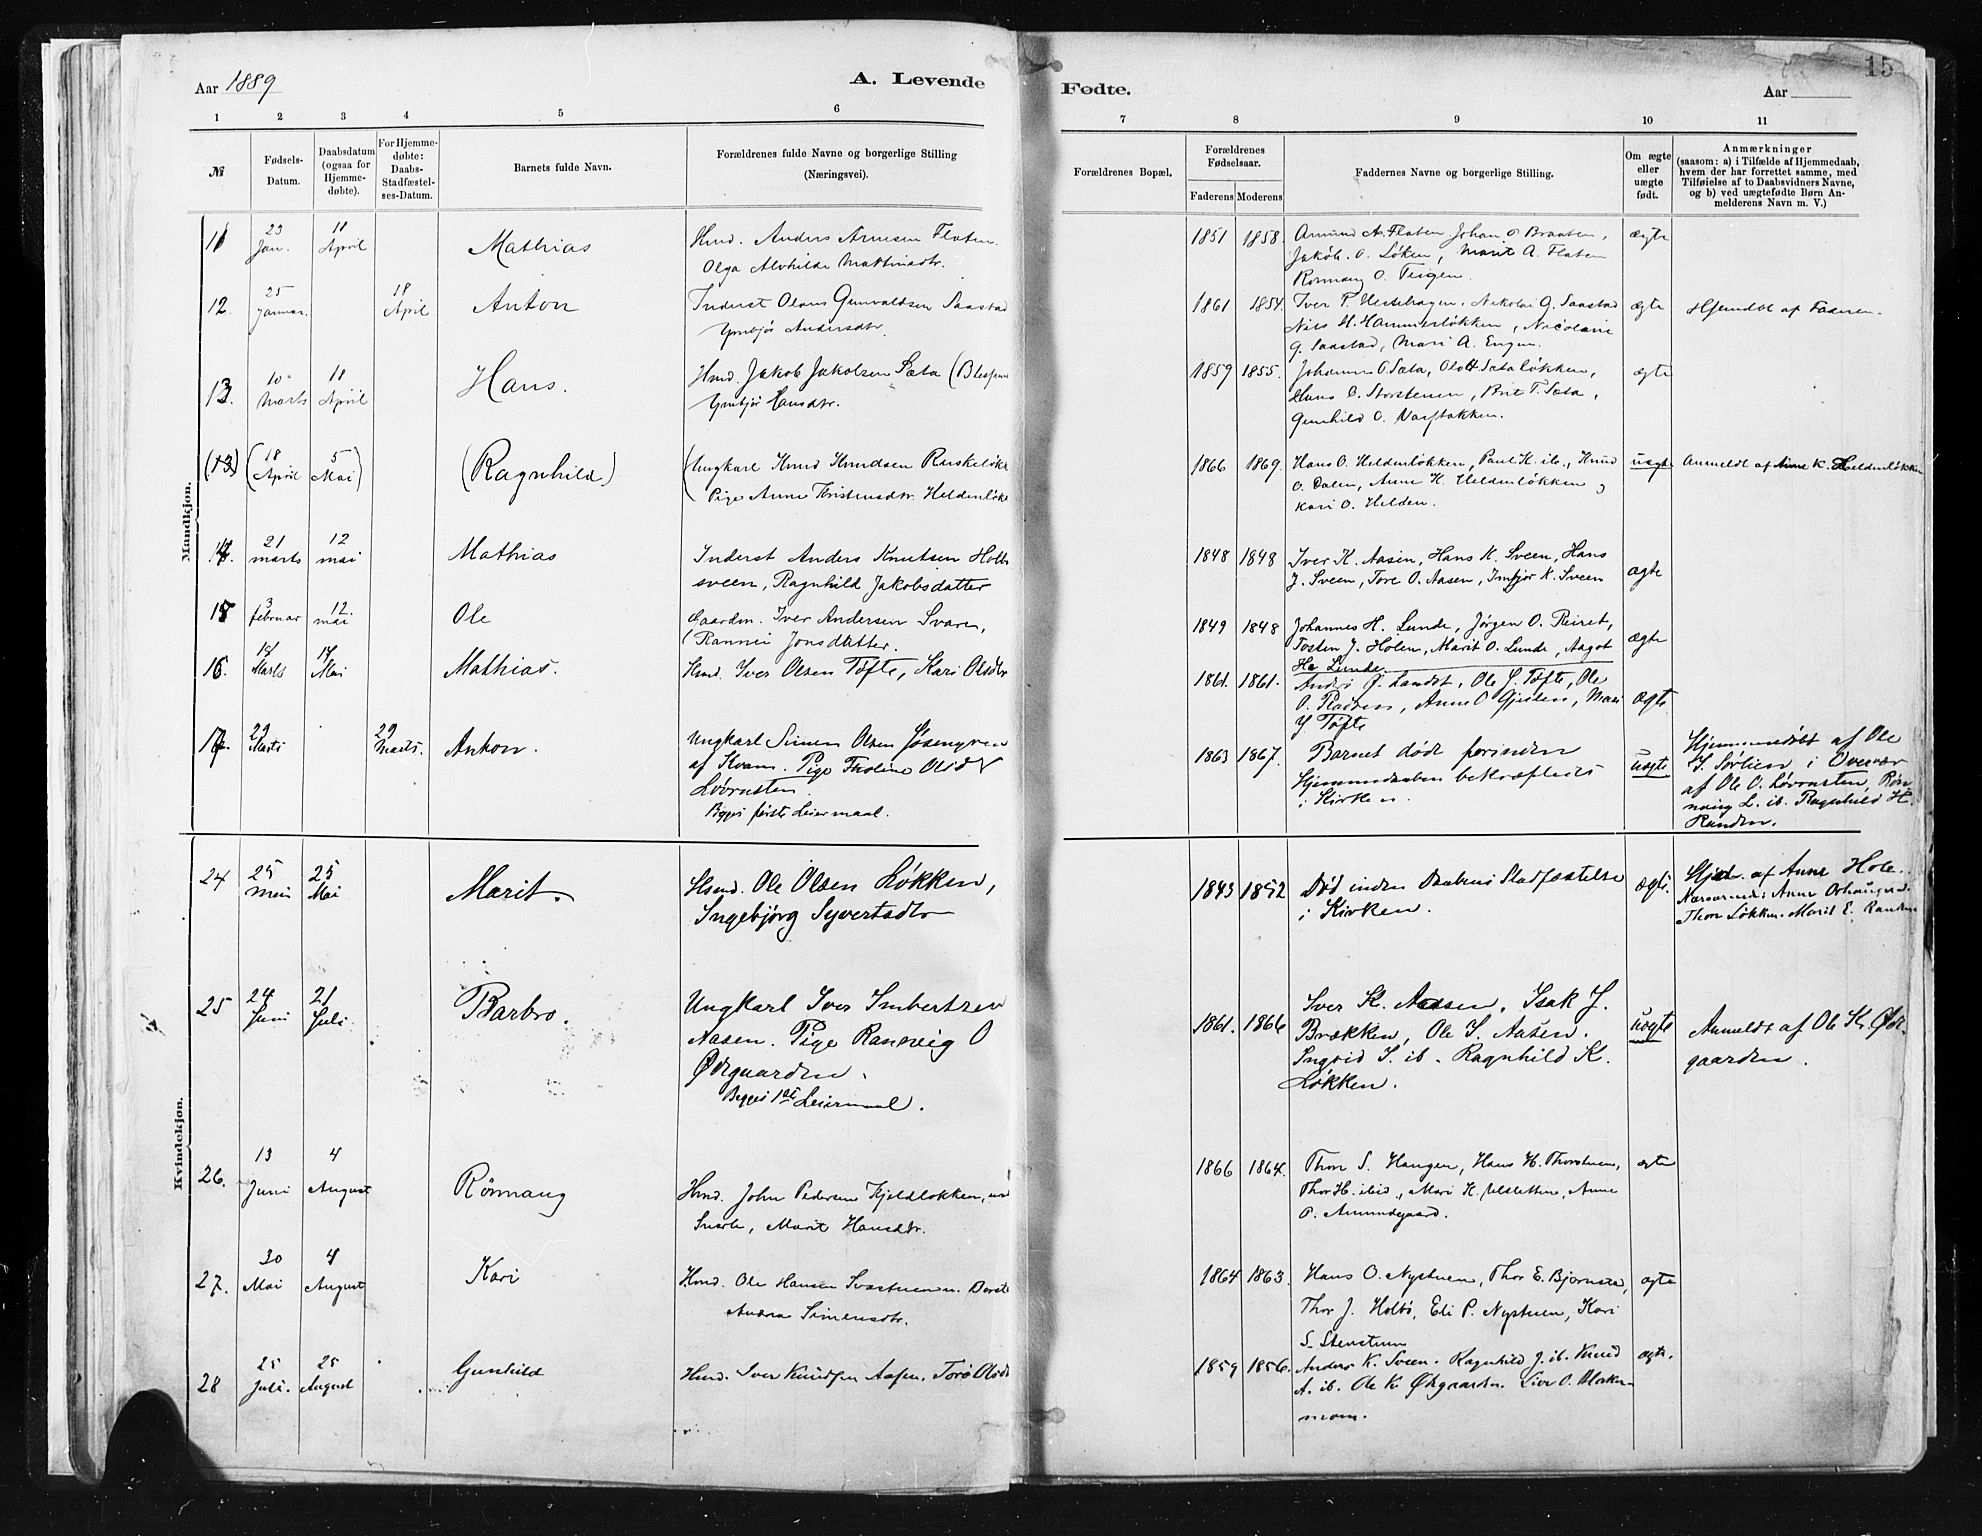 Aar 1889
A. Levende
Fødte.
15
Aar
1 2 3 4 5 6 7 8 9 10 11
№
Fødsels-
Datum.
Daabsdatum
(ogsaa for
Hjemme-
døbte).
For Hjemme-
døbte:
Daabs-
Stadfæstel-
ses-Datum.
Barnets fulde Navn.
Forældrenes fulde Navne og borgerlige Stilling
(Næringsvei).
Forældrenes Bopæl.
Forældrenes
Fødselsaar.
Faderens Moderens
Faddernes Navne og borgerlige Stilling.
Om ægte
eller
uægte
født.
Anmærkninger
(saasom: a) i Tilfælde af Hjemmedaab,
hvem der har forrettet samme, med
Tilføielse af to Daabsvidners Navne,
og b) ved uægtefødte Børn An-
melderens Navn m. V.)
Mandkjøn.
11
23 Jan.
18 April
Mathias
Hmd. Anders Arnesen Flaten
Olga Alvhilde Mathiasdtr.
1851 1858.
Amund A. Flaten Johan O Braaten,
Jakob. O. Løken, Marit A. Flaten
Rønnaug O. Teigen.
ægte
12.
25 Januar.
18 April
Anton
Inderst Olaus Gunvaldsen Saastad
Ymbjør Andersdtr.
1861 1854.
Iver P. Hestehagen. Nikolai G. Saastad
Nils H. Hammerløkken, Nicolaine
G. Saastad, Mari A. Engen.
ægte
Hjemdbt af Faderen.
13.
10 Marts
18 April
Hans.
Hmd. Jakob Jakobsen Sæta
Ymbjør Hansdtr.
1859 1855.
Johannes O. Sæta, Ole H Sætaløkken,
Hans O. Storstenen, Brit T. Sæta,
Gunhild O.
ægte
(13)
(18 April
5 Mai)
(Ragnhild)
(Ungkarl Knud Knudsen
Pige Anne Kristensdtr. Heldenløk
1866 1869.
Hans O. Heldenløkken, Paul K. ib., Knud
O. Dalen, Anne K. Heldenløkken og
Kari O. Helden.
uægte
Anmeldt af Anne K. Heldenløkken
14.
21 marts
12 mai
Mathias
Inderst Anders Knutsen Holte
sveen, Ragnhild Jakobsdatter
1848 1848
Iver K. Aasen, Hans K. Sveen, Hans
J. Sveen, Tore O. Aasen, Imbjør K. Sveen
ægte
15
3 februar
12. mai
Ole
Gaardm. Iver Andersen Svare,
Rannei Jonsdatter.
1849 1848
Johannes H. Lunde, Jørgen O. Reiret,
Tosten J. Holen, Marit O. Lunde, Aagot
H. Lunde.
ægte
16.
Marts
Mai
Mathias.
Hmd. Iver Olsen Tøfte, Kari Olsdtr
1861. 1861.
Ole J. Tøfte, Ole
O. Anne O Gjeilen, Mari
J Tøfte
ægte.
17.
29 Marts
29 Marts.
Anton.
Ungkarl Simen Olsen
af Kvam. Pige Tholine Olsdtr
Løvrusten
Begges første Leiermaal.
1863 1867.
Barnet døde forinden
Hjemmedaaben bekræftedes
i Kirken.
uægte
Hjemmedøbt af Ole
S. Sørlien i Overvær
af Ole O. Løvrusten, Røn-
naug L. ib. Ragnhild H.
Randen.
Kvindekjøn.
24
25 mai
25 Mai
Marit.
Hsmd. Ole Olsen Løkken,
Ingebjørg Syvertsdtr
1843 1852
Død inden Daabens Stadfæstelse
i Kirken.
ægte.
Hjd. af Anne Hole.
Nærværende: Anne
Thore Løkken. Marit E. Randen
25
24 Juni
21 Juli.
Barbro.
Ungkarl Iver Imbertsen
Aasen. Pige Ranveig O
Ødegaarden.
Begges 1ste Leiermaal.
1861. 1866
Iver K. Aasen, Isak J.
Brækken, Ole I. Aasen.
Ingrid I. ib. Ragnhild K.
Løkken.
uægte
Anmeldt af Ole K. Øde-
gaarden.
26.
13 Juni
4 August
Rønnaug
Hmd. John Pedersen Kjeldløkken, un
Snerle, Marit Hansdtr.
1866 1864.
Thore S. Haugen, Hans H. Thorstuen,
Thor H. ibid., Mari K. Ulsletten, Anne
P. Amundgaard.
ægte
27.
30 Mai
4 August
Kari
Hmd. Ole Hansen Svastuen u.
Andrea Simensdtr.
1864 1863.
Hans O. Nystuen, Thor E. Bjørnsta,
Thor J. Holbø, Eli P. Nystuen, Kari
S. Stenstuen
ægte
28
25 Juli.
25 August
Gunhild
Hmd. Iver Knudsen Aasen, Tore Olsdt
1859 1856.
Anders K. Sveen. Ragnhild J. ib. Knud
A. ib. Ole K. Ødegaarden. Live O. Bleker-
moen.
ægte.